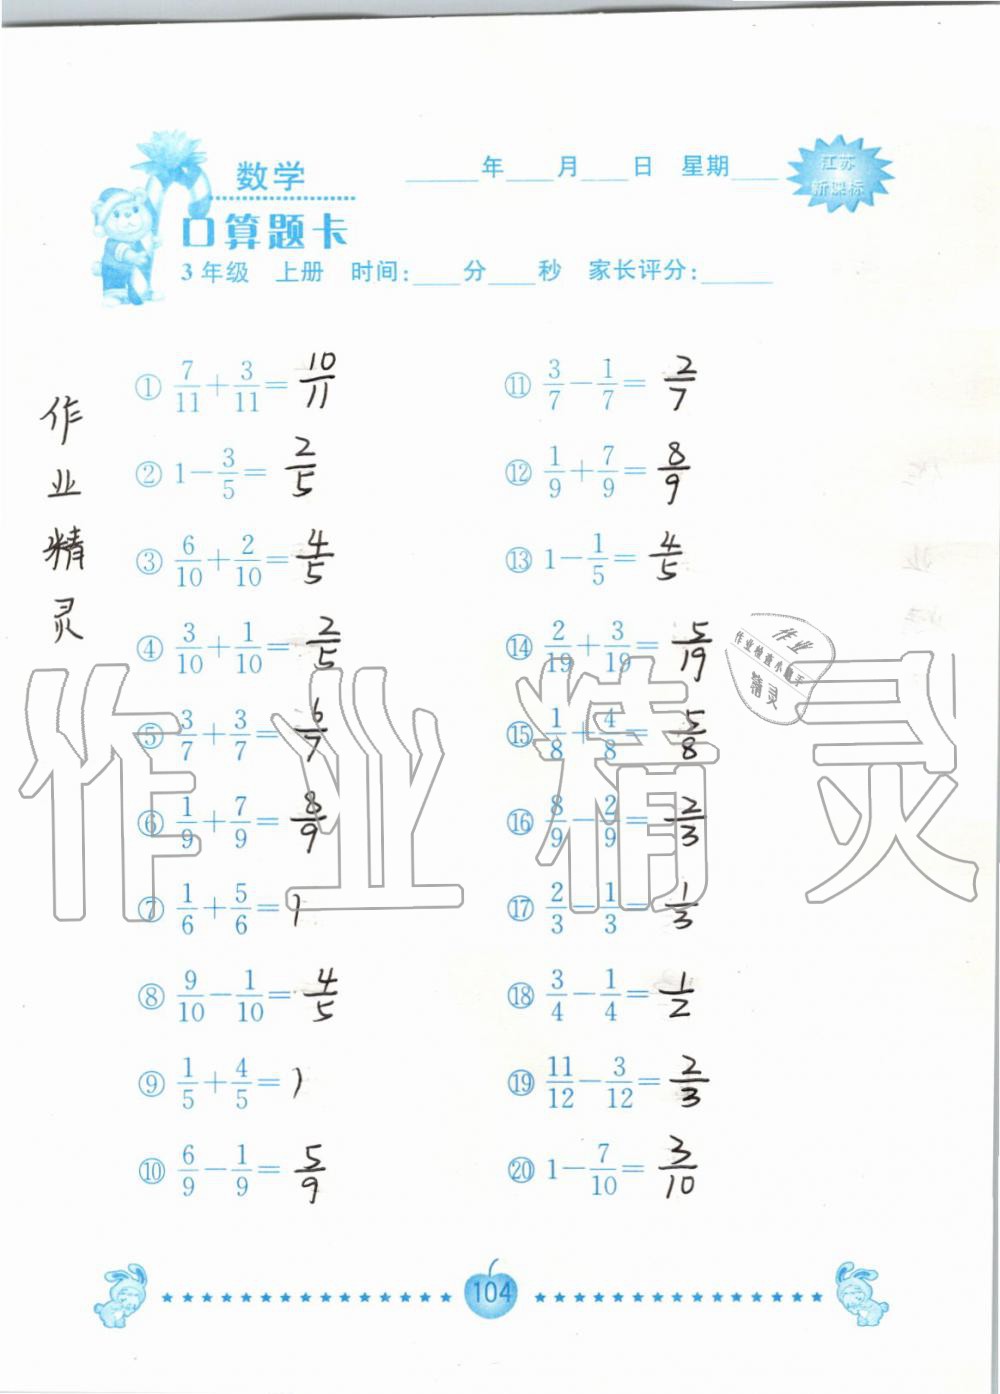 数学
____年____月____日 星期____
江苏
新课标
口算题卡
3年级 上册 时间：____分____秒 家长评分：____
作业精灵
① 7/11+3/11= 10/11
② 1-3/5= 2/5
③ 6/10+2/10= 4/5
④ 3/10+1/10= 2/5
⑤ 3/7+3/7= 6/7
⑥ 1/9+7/9= 8/9
⑦ 1/6+5/6= 1
⑧ 9/10-1/10= 4/5
⑨ 1/5+4/5= 1
⑩ 6/9-1/9= 5/9
⑪ 3/7-1/7= 2/7
⑫ 1/9+7/9= 8/9
⑬ 1-1/5= 4/5
⑭ 2/19+3/19= 5/19
⑮ 1/8+4/8= 5/8
⑯ 8/9-2/9= 2/3
⑰ 2/3-1/3= 1/3
⑱ 3/4-1/4= 1/2
⑲ 11/12-3/12= 2/3
⑳ 1-7/10= 3/10
作业
作业检查小能手
精灵
作业精灵
104